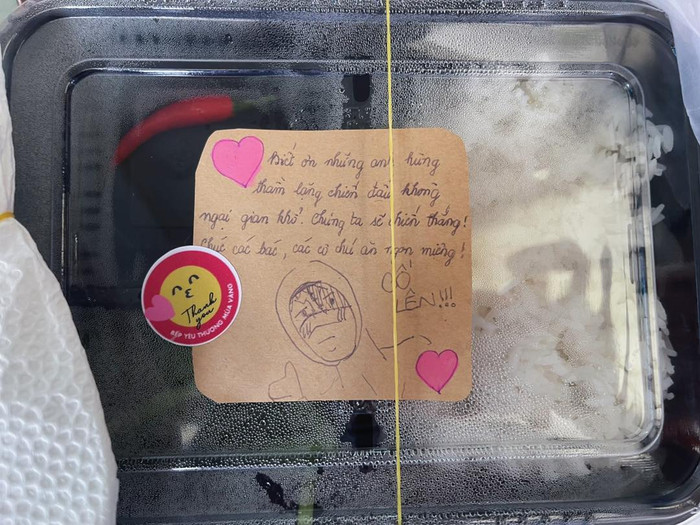 Biết ơn những anh hùng
thầm lặng chiến đấu không
ngại gian khổ. Chúng ta sẽ chiến thắng!
Chúc các bác, các cô chú ăn ngon miệng!
CỐ
LÊN!!!
Thank
you
BẾP YÊU THƯƠNG MÙA VÀNG